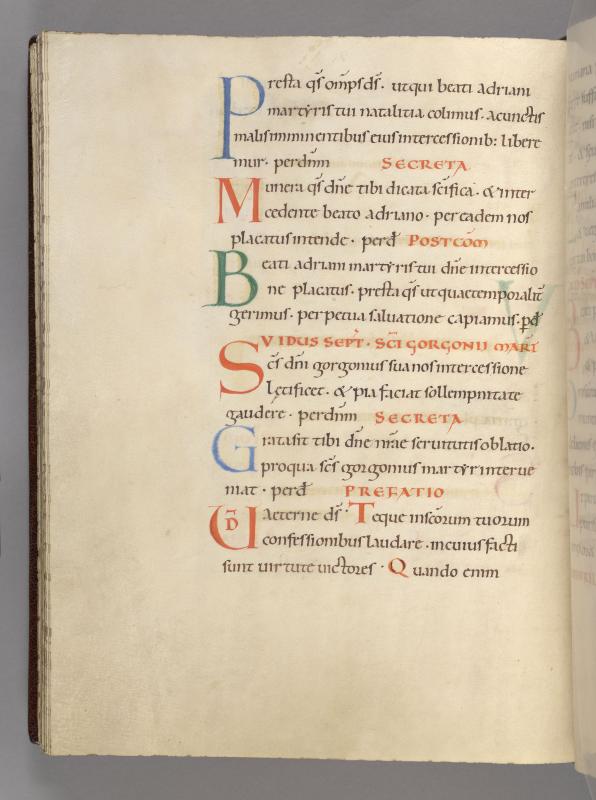 Presta q̅s om̅ps d̅s · ut qui beati adriani
martyris tui natalitia colimus · a cunctis
malis imminentibus eius intercessionib: libere
mur · per dn̅m SECRETA
Munera q̅s dn̅e tibi dicata sc̅ifica · & inter
cedente beato adriano · per eadem nos
placatus intende · per đ POSTCOM̅
Beati adriani martyris tui dn̅e intercessio
ne placatus · presta q̅s ut quae temporalit̅
gerimus · perpetua saluatione capiamus · p̲ đ
V IDUS SEPT̅ · SC̅I GORGONII MART̅
Sc̅s dn̅i gorgonius sua nos intercessione
lętificet · & pia faciat sollempnitate
gaudere · per dn̅m SECRETA
Grata sit tibi dn̅e nr̅ae seruitutis oblatio ·
pro qua sc̅s gorgonius martyr interue
niat · per đ PREFATIO
UD̅ aeterne d̅s · Teque in sc̅orum tuorum
confessionibus laudare · in cuius facti
sunt uirtute uictores · Quando enim